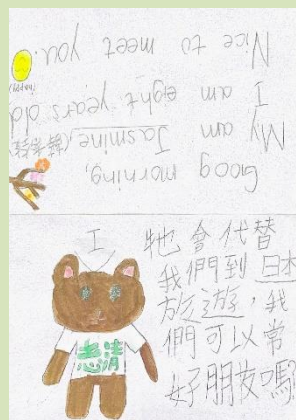 Goog morning,
My am Jasmine
I am eight years old
Nice to meet you.
I
牠會代替
我們到日本
旅遊，我
們可以常
好朋友嗎
志清